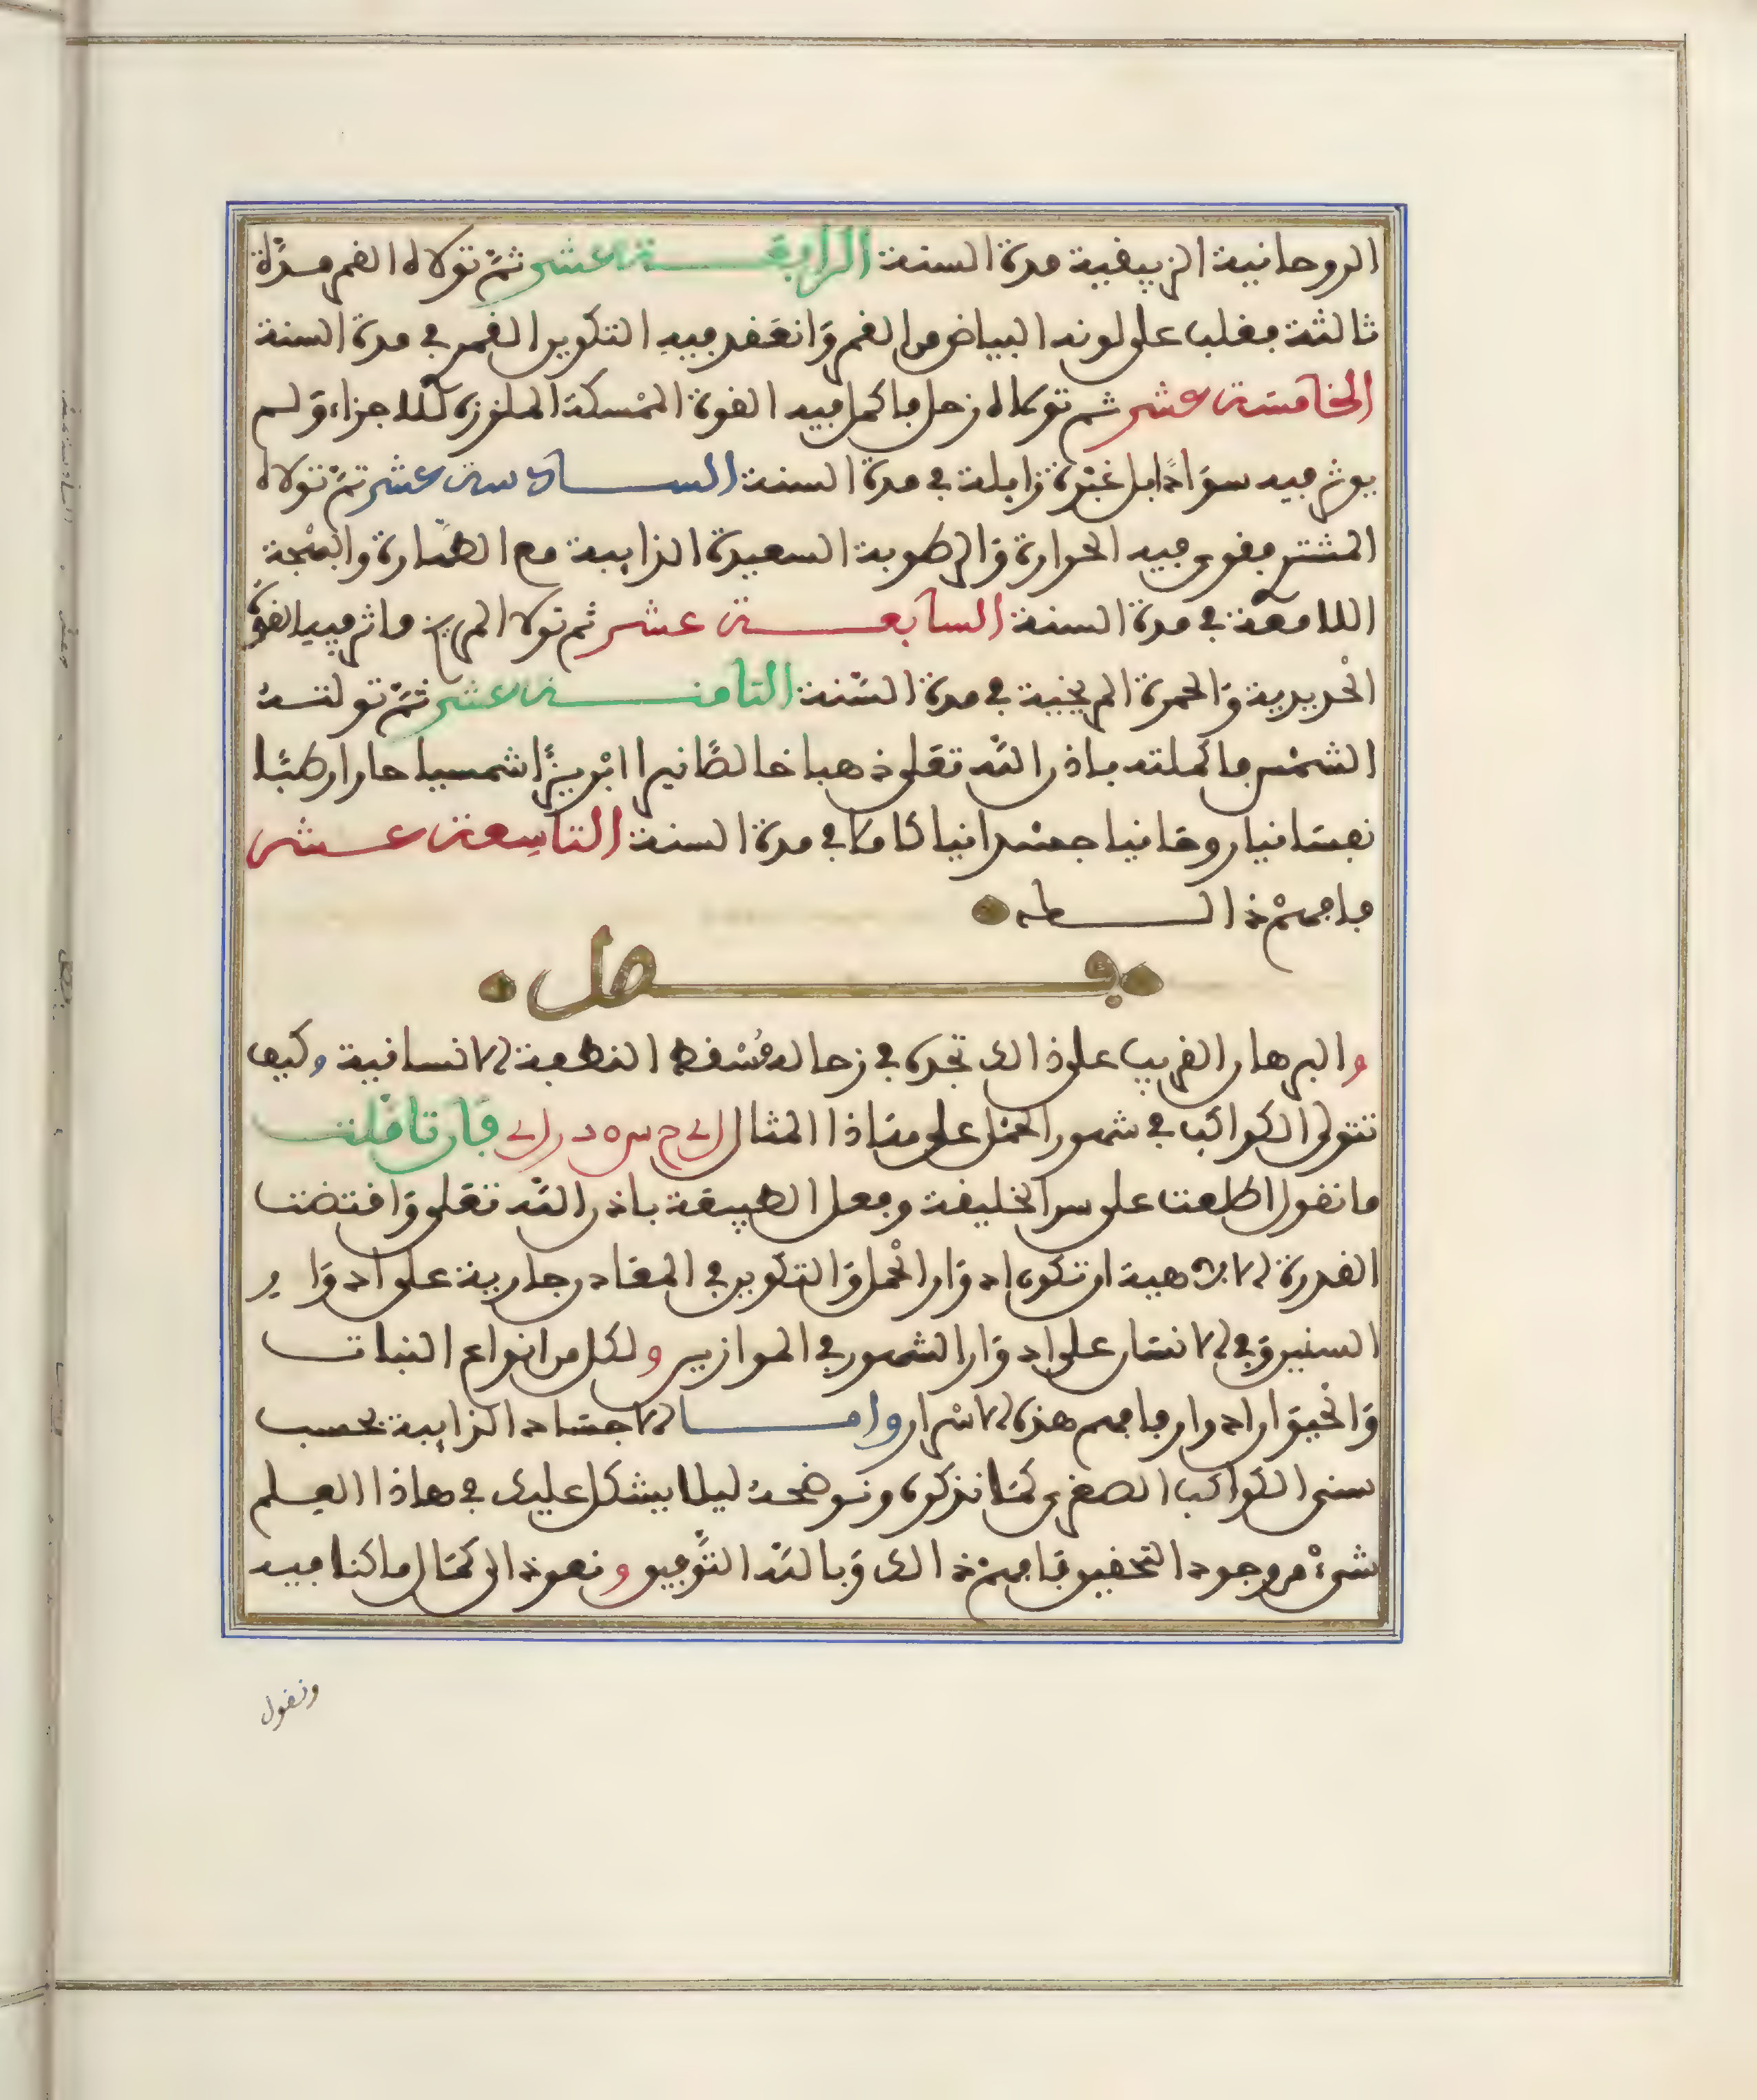 الروحانية الزيبقية مدة السنة الرابعة عشر ثمّ تولاه القمر مدّة
ثالثة فغلب على لونه البياض من القمر وانعقد فيه التكوين القمري في مدة السنة
الخامسة عشر ثم تولاه زحل فاكمل فيه القوة الممسكة الملززة للاجزاء ولم
يوثر فيه سوادًا بل غبرة زايلة في مدة السنة السادسة عشر ثمّ تولاه
المشتري فقوى فيه الحرارة والرطوبة السعيدة الذايبة مع الطهارة والبهجة
اللامعة في مدة السنة السابعة عشر ثم تولاه المريخ فاثر فيه القوة
الحديدية والحمرة المريخية في مدة السّنة الثامنة عشر ثمّ تولتهُ
الشمس فاكملته باذن اللّه تعلى ذهبا خالصًا نيرا ابريزًا شمسيا حارا رطبًا
نفسانيا روحانيا جسدانيا كاملا في مدة السنة التاسعة عشر
فافهمْ ذالك
فصل
والبرهان القريب على ذالك تجده في زحل لمسقط النطفة الانسانية وكيف
تتولى الكواكب في شهور الحمل على هاذا المثال
فان تاملت
ما نقول اطلعت على سر الخليقة وفعل الطبيعة باذن اللّه تعلى واقتضت
القدرة الالاهية ان تكون ادوار الحمل والتكوين في المعادن جارية على ادوار
السنين وفي الانسان على ادوار الشهور في الموازين ولكل من انواع النبات
والحيوان ادوار فافهم هذه الاسْرار واما الاجساد الذايبة بحسب
سنى الكواكب الصغرى كما نذكره ونوضحهُ ليلا يشكل عليك في هاذا العِلم
شيءْ من وجوه التحقيق فافهمْ ذالك وبالله التّوفيق ونعود الى كمال ما كنا فيه
ونقول